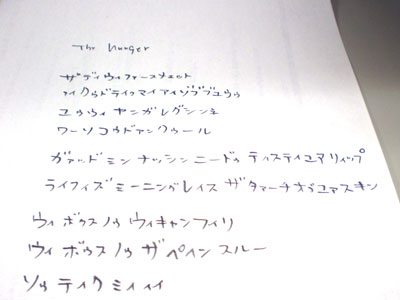 The hunger
ザ ディ ウィ ファースメェット
アイ クゥド テイク マイ アイ ゾブブ ユウゥ
ユゥ ウィ ヤンガレグシンネ
ワーソ コウドァンクゥール
ガァッド ミン ナッシン ニードゥ ティスティ ユア リィップ
ライフ イズ ミーニングレイス ザ タァーチ オブ ユァ スキン
ウィ ボウス ノゥ ウィ キャンフィリ
ウィ ボウス ノゥ ザ ペイン スルー
ソゥ テイク ミィ イイ